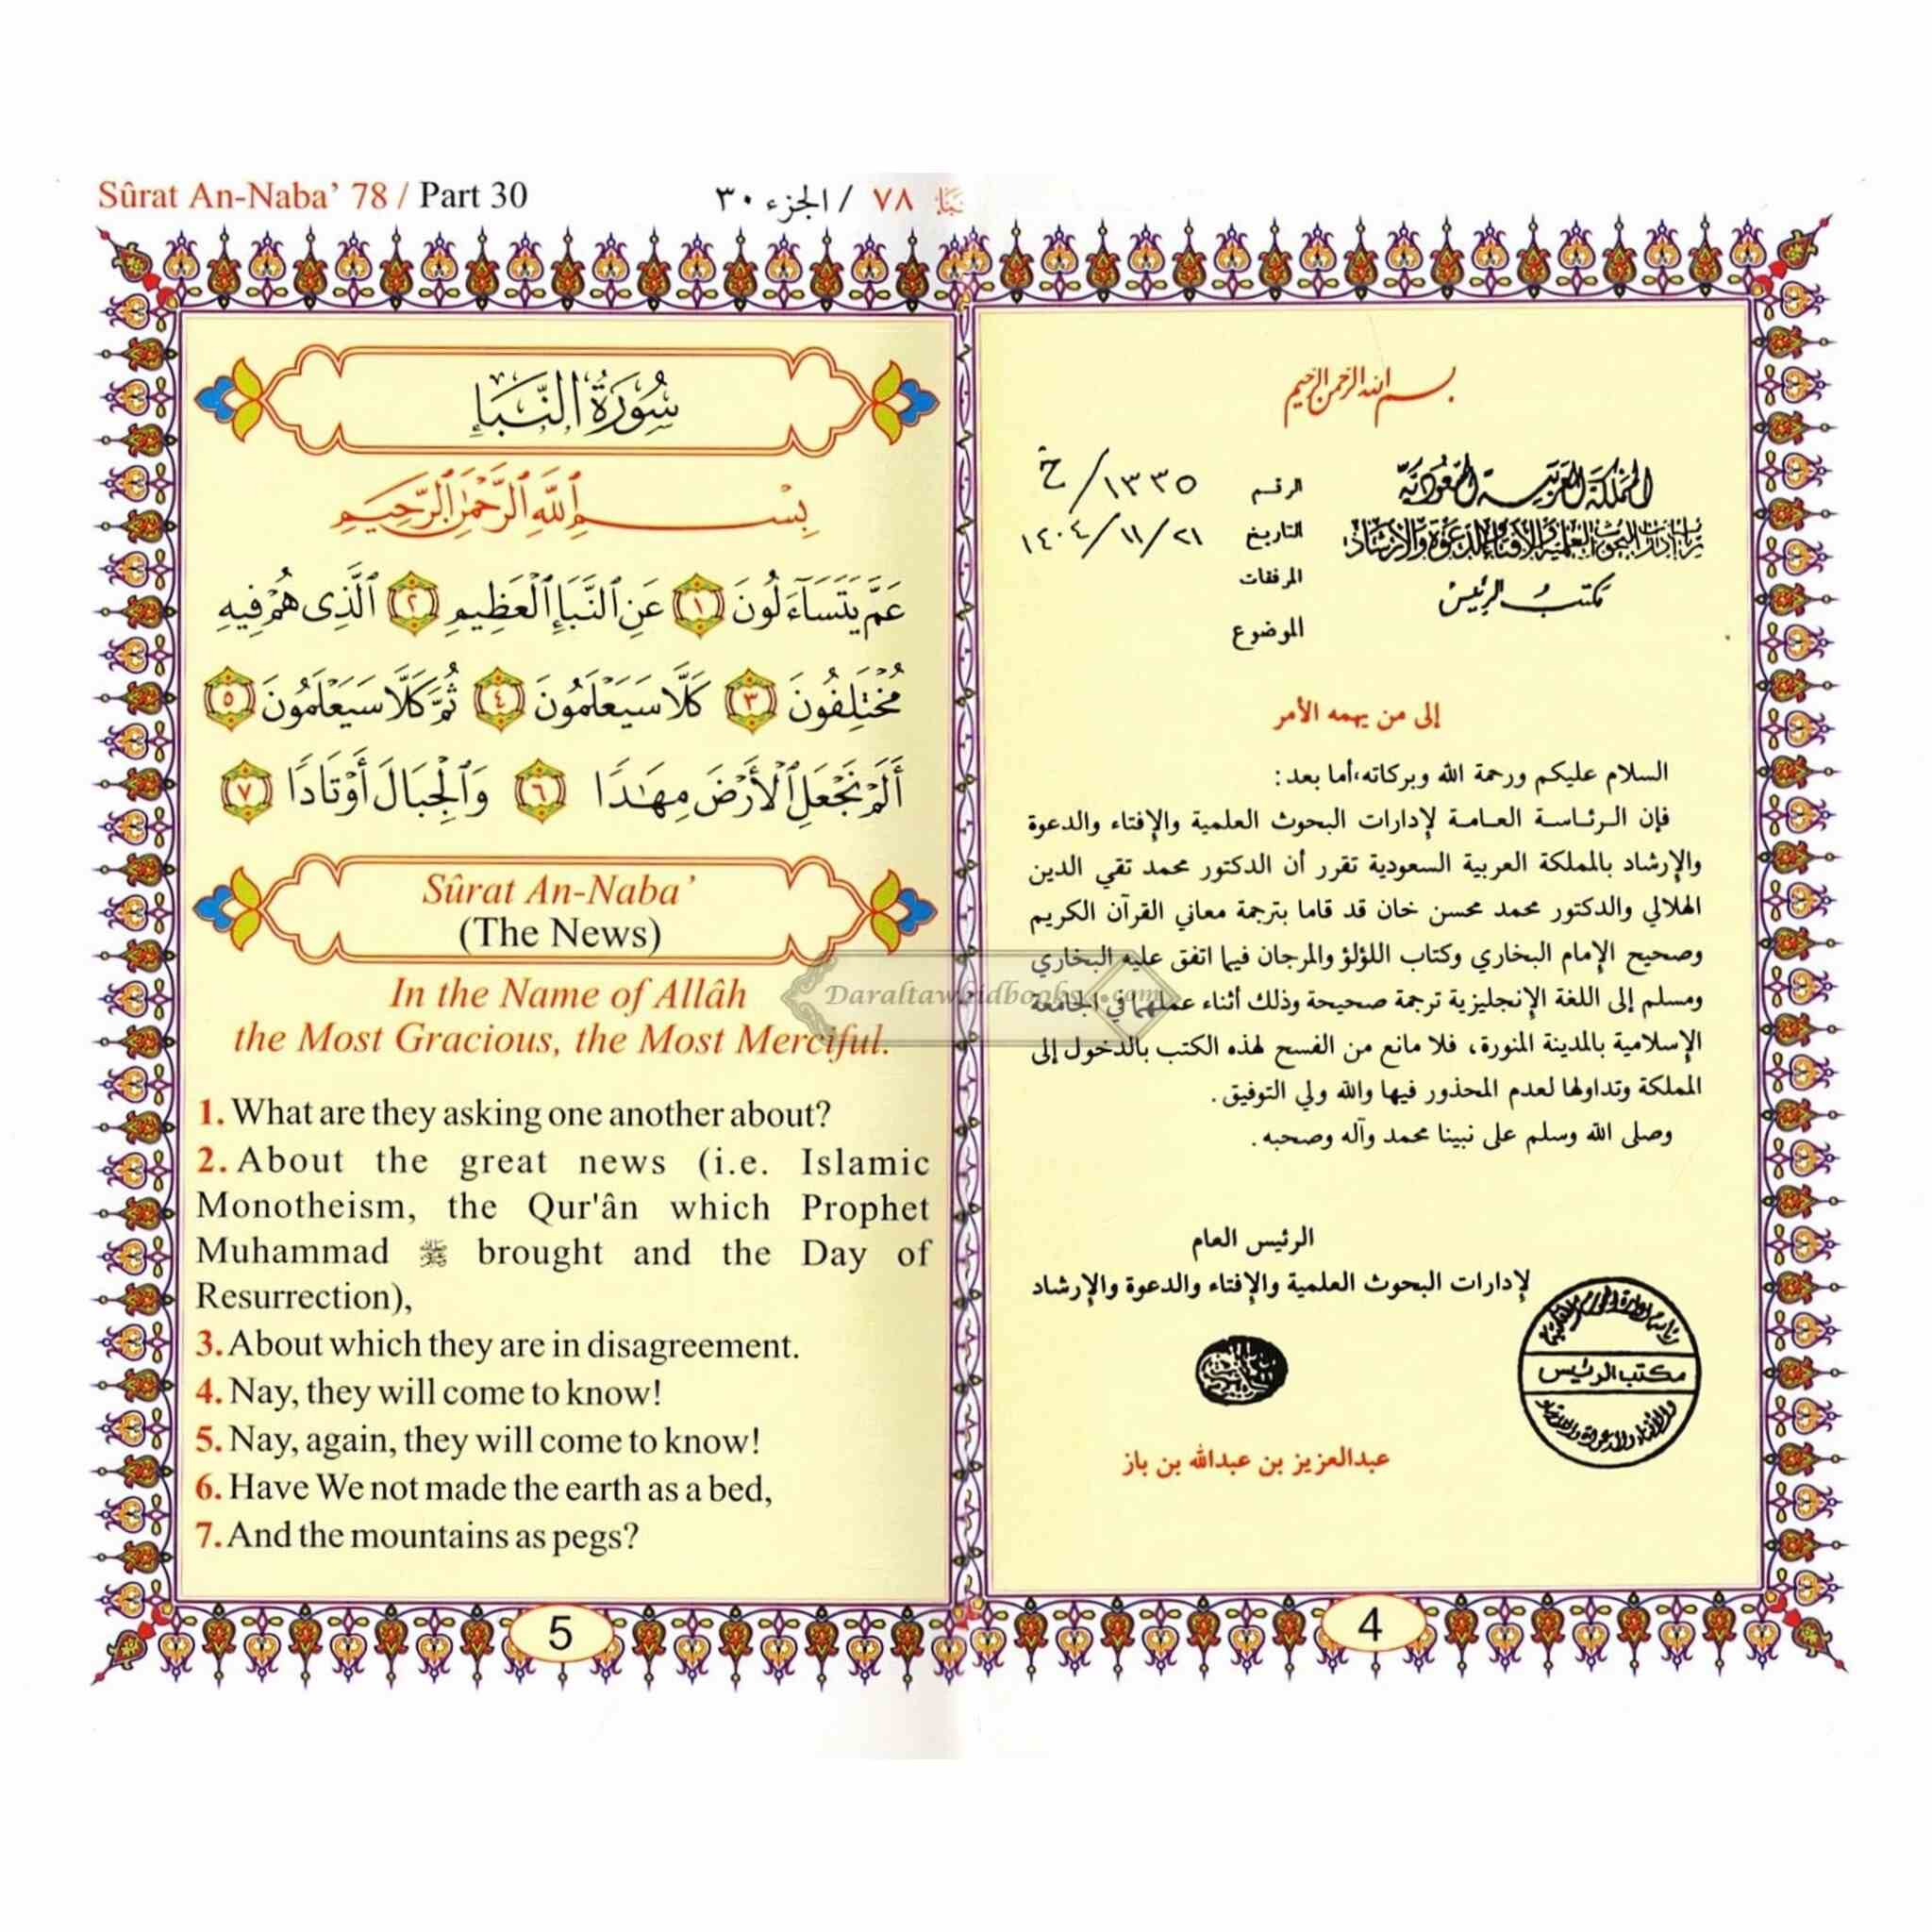 بسم الله الرحمن الرحيم
المملكة العربية السعودية
رئاسة إدارات البحوث العلمية والإفتاء والدعوة والإرشاد
مكتب الرئيس
الرقم ١٣٣٥/خ
التاريخ ٢١/١١/١٤٠٤
المرفقات
الموضوع
إلى من يهمه الأمر
السلام عليكم ورحمة الله وبركاته،أما بعد:
فإن الرئاسة العامة لإدارات البحوث العلمية والإفتاء والدعوة
والإرشاد بالمملكة العربية السعودية تقرر أن الدكتور محمد تقي الدين
الهلالي والدكتور محمد محسن خان قد قاما بترجمة معاني القرآن الكريم
وصحيح الإمام البخاري وكتاب اللؤلؤ والمرجان فيما اتفق عليه البخاري
ومسلم إلى اللغة الإنجليزية ترجمة صحيحة وذلك أثناء عملهما في الجامعة
الإسلامية بالمدينة المنورة، فلا مانع من الفسح لهذه الكتب بالدخول إلى
المملكة وتداولها لعدم المحذور فيها والله ولي التوفيق.
وصلى الله وسلم على نبينا محمد وآله وصحبه.
الرئيس العام
لإدارات البحوث العلمية والإفتاء والدعوة والإرشاد
مكتب الرئيس
عبدالعزيز بن عبدالله بن باز
4
Sûrat An-Naba’ 78 / Part 30
٧٨ / الجزء ٣٠
سُورَةُ النَّبَإِ
بِسْمِ ٱللَّهِ ٱلرَّحْمَٰنِ ٱلرَّحِيمِ
عَمَّ يَتَسَآءَلُونَ ١ عَنِ ٱلنَّبَإِ ٱلْعَظِيمِ ٢ ٱلَّذِى هُمْ فِيهِ
مُخْتَلِفُونَ ٣ كَلَّا سَيَعْلَمُونَ ٤ ثُمَّ كَلَّا سَيَعْلَمُونَ ٥
أَلَمْ نَجْعَلِ ٱلْأَرْضَ مِهَٰدًا ٦ وَٱلْجِبَالَ أَوْتَادًا ٧
Sûrat An-Naba’
(The News)
In the Name of Allâh
the Most Gracious, the Most Merciful.
1. What are they asking one another about?
2. About the great news (i.e. Islamic
Monotheism, the Qur'ân which Prophet
Muhammad ﷺ brought and the Day of
Resurrection),
3. About which they are in disagreement.
4. Nay, they will come to know!
5. Nay, again, they will come to know!
6. Have We not made the earth as a bed,
7. And the mountains as pegs?
5
Daraltawhidbooks.com